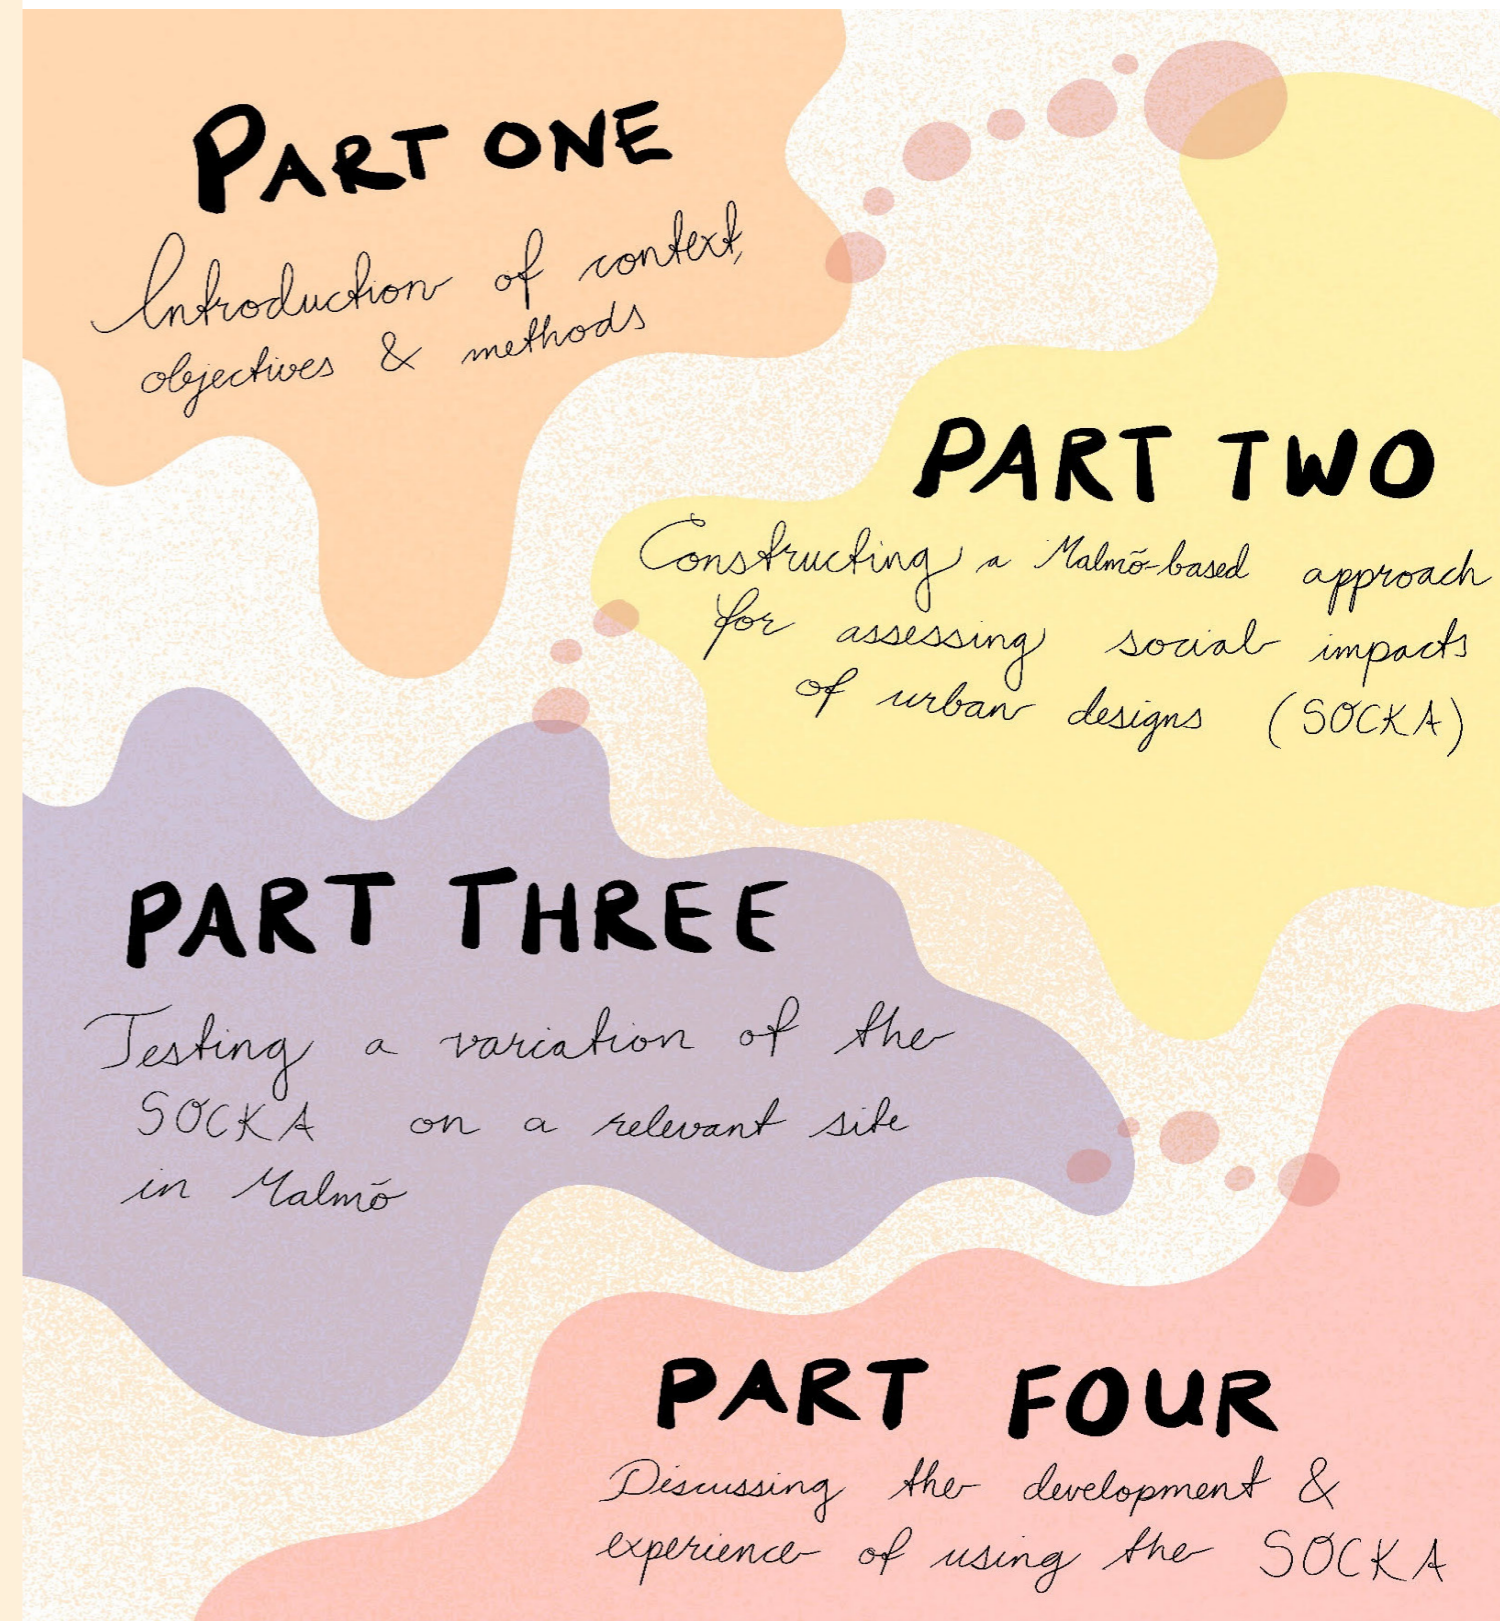 PART ONE
Introduction of context,
objectives & methods
PART TWO
Constructing a Malmö-based approach
for assessing social impacts
of urban designs (SOCKA)
PART THREE
Testing a variation of the
SOCKA on a relevant site
in Malmö
PART FOUR
Discussing the development &
experience of using the SOCKA